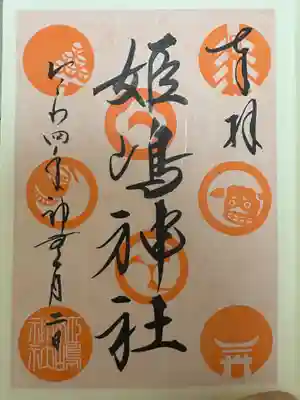 奉拝
姫嶋神社
令和四年神無月二日
姫嶋神社